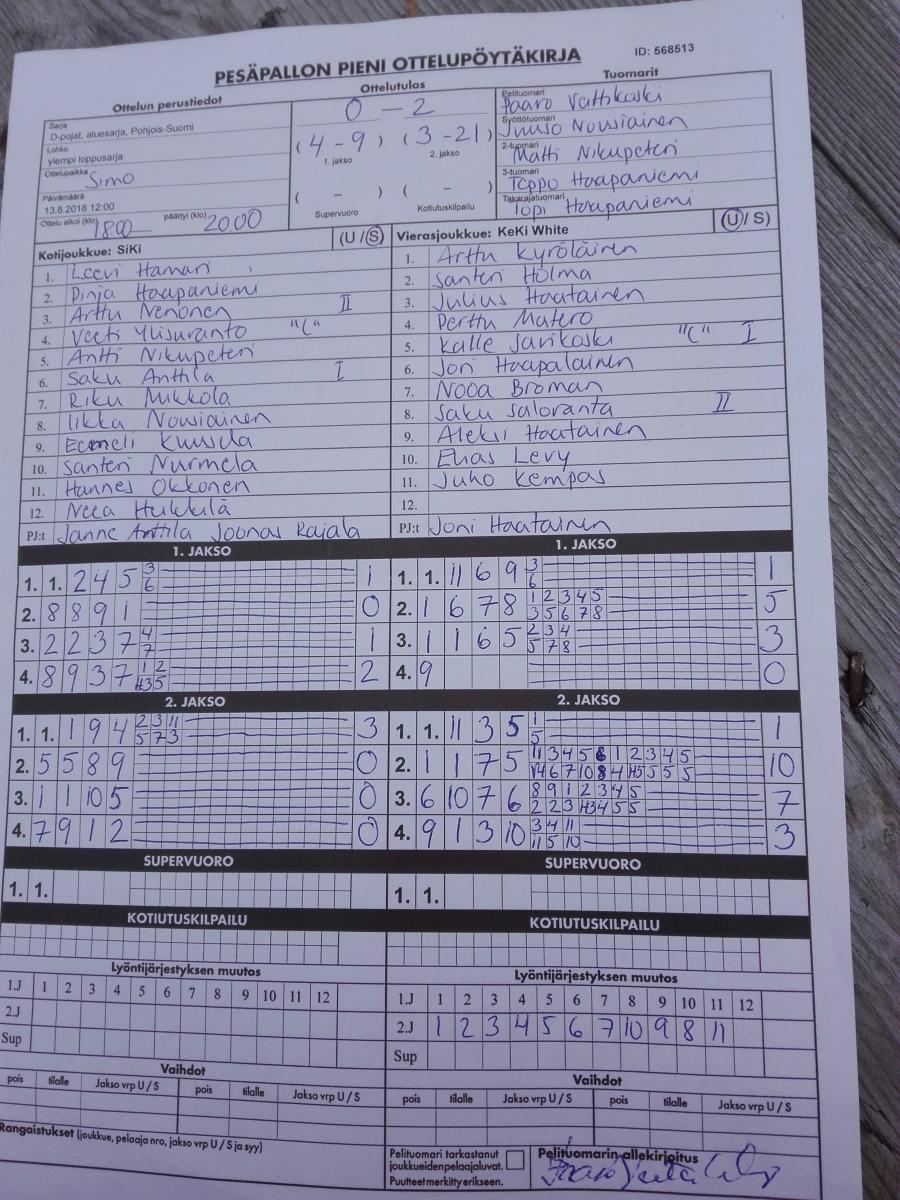 PESÄPALLON PIENI OTTELUPÖYTÄKIRJA
ID: 568513
Ottelun perustiedot
Sarja
D-pojat, aluesarja, Pohjois-Suomi
Lohko
ylempi loppusarja
Ottelupaikka Simo
Päivämäärä
13.8.2018 12:00
Ottelu alkoi (klo) 18.00 päättyi (klo) 20.00
Ottelutulos
0 - 2
(4 - 9) (3 - 21)
1. jakso 2. jakso
( - ) ( - )
Supervuoro Kotiutuskilpailu
Tuomarit
Pelituomari
Syöttötuomari
Juuso Nousiainen
2-tuomari
Matti Nikupeteri
3-tuomari
Teppo Haapaniemi
Takarajatuomari
Topi Haapaniemi
Kotijoukkue: SiKi (U / S)
1. Leevi Hamari
2. Pinja Haapaniemi
3. Arttu Nenonen II
4. Veeti Ylisuranto "C"
5. Antti Nikupeteri
6. Saku Anttila I
7. Riku Mikkola
8. Iikka Nousiainen
9. Eemeli Kuusela
10. Santeri Nurmela
11. Hannes Okkonen
12. Neea Hukkila
PJ:t Janne Anttila Joonas Rajala
Vierasjoukkue: KeKi White (U / S)
1. Arttu Kyröläinen
2. Santeri Holma
3. Julius Haatainen
4. Perttu Matero
5. Kalle Jarikoski "C" I
6. Joni Haapalainen
7. Nooa Broman
8. Saku Saloranta II
9. Aleksi Haatainen
10. Elias Levy
11. Juho Kempas
12.
PJ:t Joni Haatainen
1. JAKSO
1. 1. 2 4 5 3 1
6
2. 8 8 9 1 0
3. 2 2 3 7 4 1
7
4. 8 9 3 7 1 2 2
H3 5
2. JAKSO
1. 1. 1 9 4 2 3 11 3
5 7 3
2. 5 5 8 9 0
3. 1 1 10 5 0
4. 7 9 1 2 0
SUPERVUORO
1. 1.
KOTIUTUSKILPAILU
Lyöntijärjestyksen muutos
1.J 1 2 3 4 5 6 7 8 9 10 11 12
2.J
Sup
Vaihdot
pois tilalle Jakso vrp U / S pois tilalle Jakso vrp U / S
Rangaistukset (joukkue, pelaaja nro, jakso vrp U / S ja syy)
1. JAKSO
1. 1. 11 6 9 3 1
6
2. 1 6 7 8 1 2 3 4 5 5
3 5 6 7 8
3. 1 1 6 5 2 3 4 3
5 7 8
4. 9 0
2. JAKSO
1. 1. 11 3 5 1 1
5
2. 1 1 7 5 11 3 4 5 6 1 2 3 4 5 10
6 7 10 8 4 H5 5 5 5
3. 6 10 7 6 8 9 1 2 3 4 5 7
2 2 3 H3 4 5 5
4. 9 1 3 10 3 4 11 3
11 5 10
SUPERVUORO
1. 1.
KOTIUTUSKILPAILU
Lyöntijärjestyksen muutos
1.J 1 2 3 4 5 6 7 8 9 10 11 12
2.J 1 2 3 4 5 6 7 10 9 8 11
Sup
Vaihdot
pois tilalle Jakso vrp U / S pois tilalle Jakso vrp U / S
Pelituomari tarkastanut
joukkueiden pelaajaluvat.
Puutteet merkitty erikseen.
Pelituomarin allekirjoitus